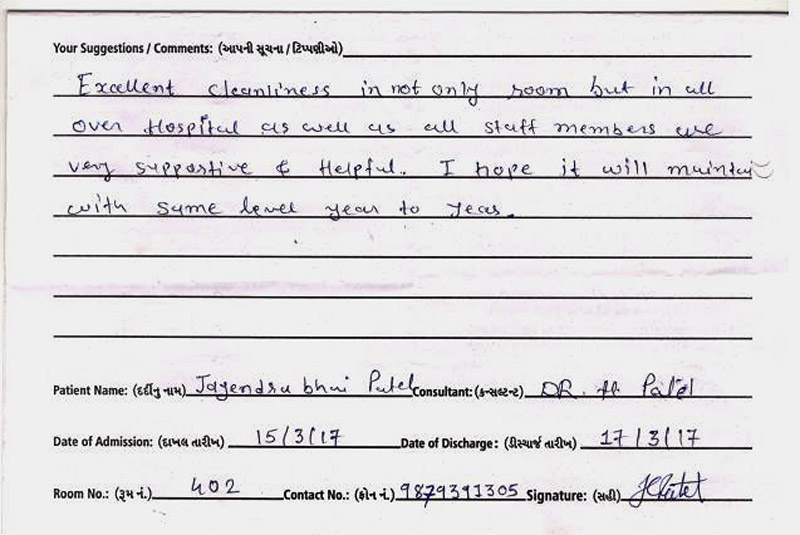 Your Suggestions / Comments: (આપની સૂચના / ટિપ્પણીઓ)
Excellent cleanliness in not only room but in all
over Hospital as well as all staff members are
very supportive & Helpful. I hope it will maintain
with same level year to year.
Patient Name: (દર્દીનુ નામ) Jayendrabhai Patel Consultant: (કન્સલ્ટન્ટ) DR. H Patel
Date of Admission: (દાખલ તારીખ) 15/3/17 Date of Discharge: (ડીસ્ચાર્જ તારીખ) 17/3/17
Room No.: (રૂમ નં.) 402 Contact No.: (ફોન નં.) 9879391305 Signature: (સહી)